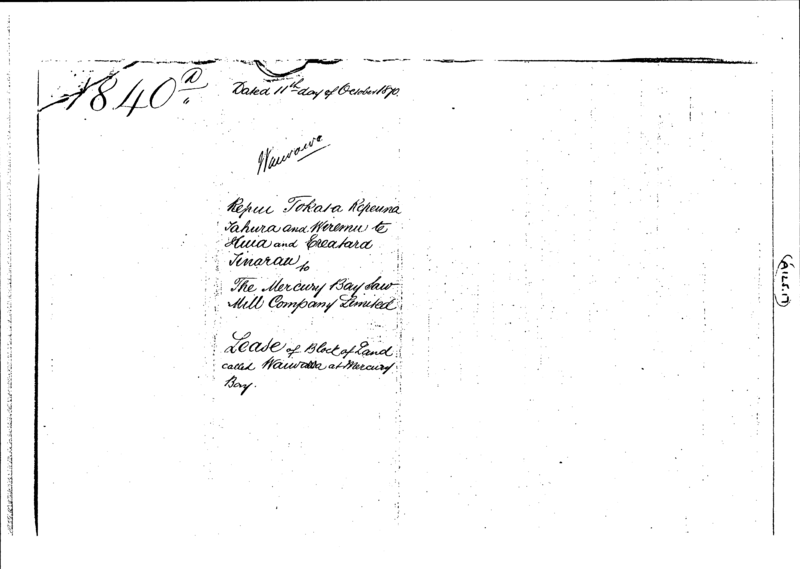 1840 D
Dated 11th day of October 1870.
Waiwawa
Repiu Tokata Repeuna
Tahura and Wiremu te
Huia and Ereatara
Tinarau
to
The Mercury Bay Saw
Mill Company Limited
Lease of Block of Land
called Waiwawa at Mercury
Bay.